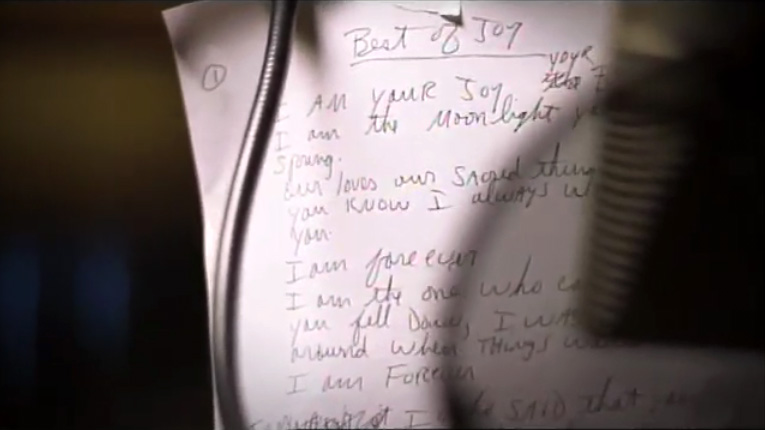 Best of Joy
your
1
I AM YOUR JOY
I am the Moonlight
Spring.
our loves our SACRed thing
you KNOW I always W
you.
I am foreever
I am the one who
you fell Down, I WAS
around when THINGS
I am Foreever
I SAID that